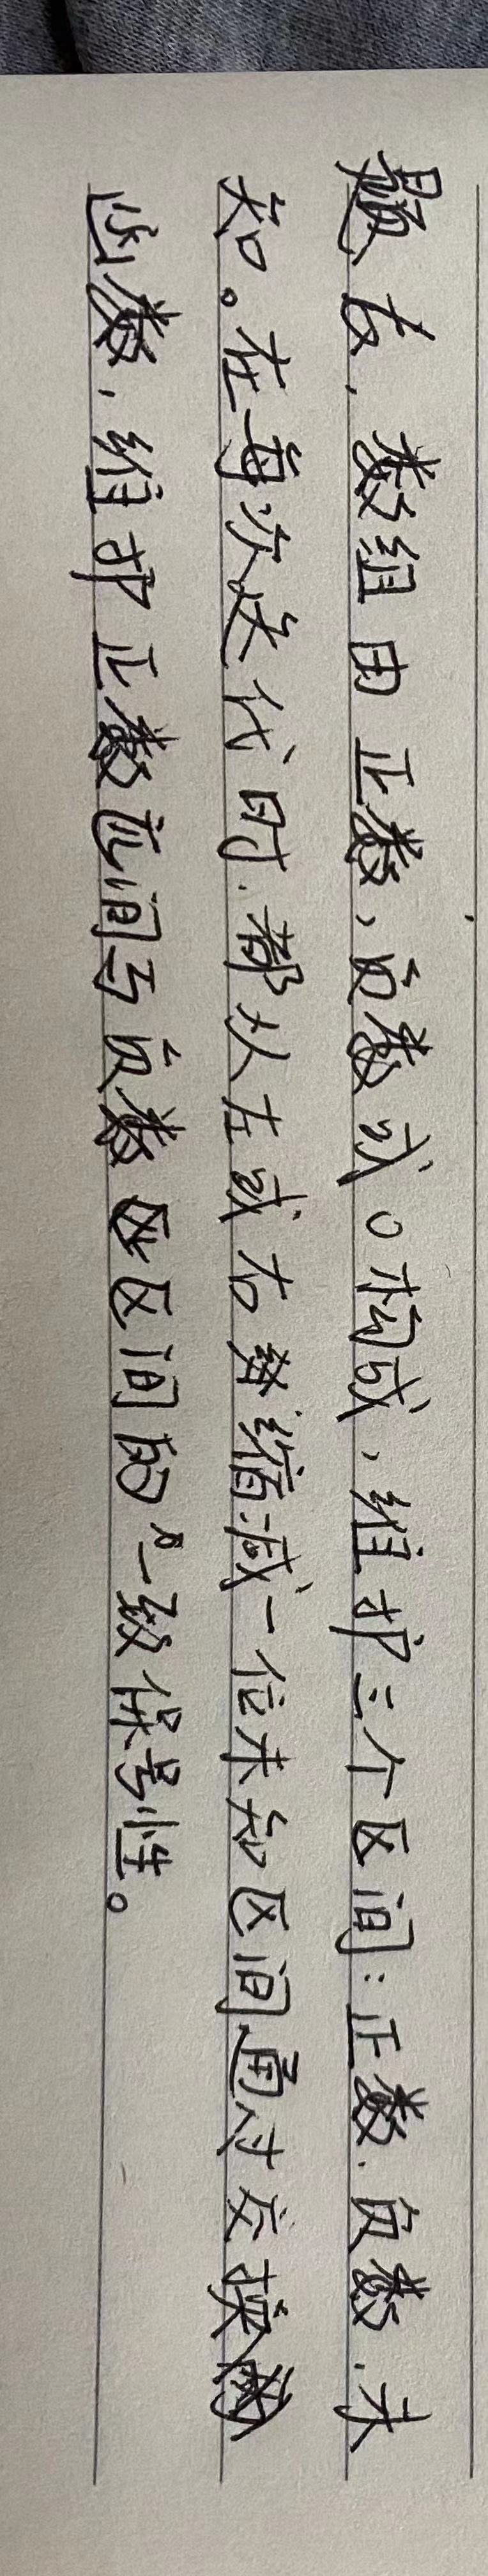 题右,数组由正数,负数或0构成,维护三个区间:正数.负数.未
知。在每次迭代时.都从左或右缩减一位未知区间,通过交换
函数,维护正数区间与负数区间的一致保号性。